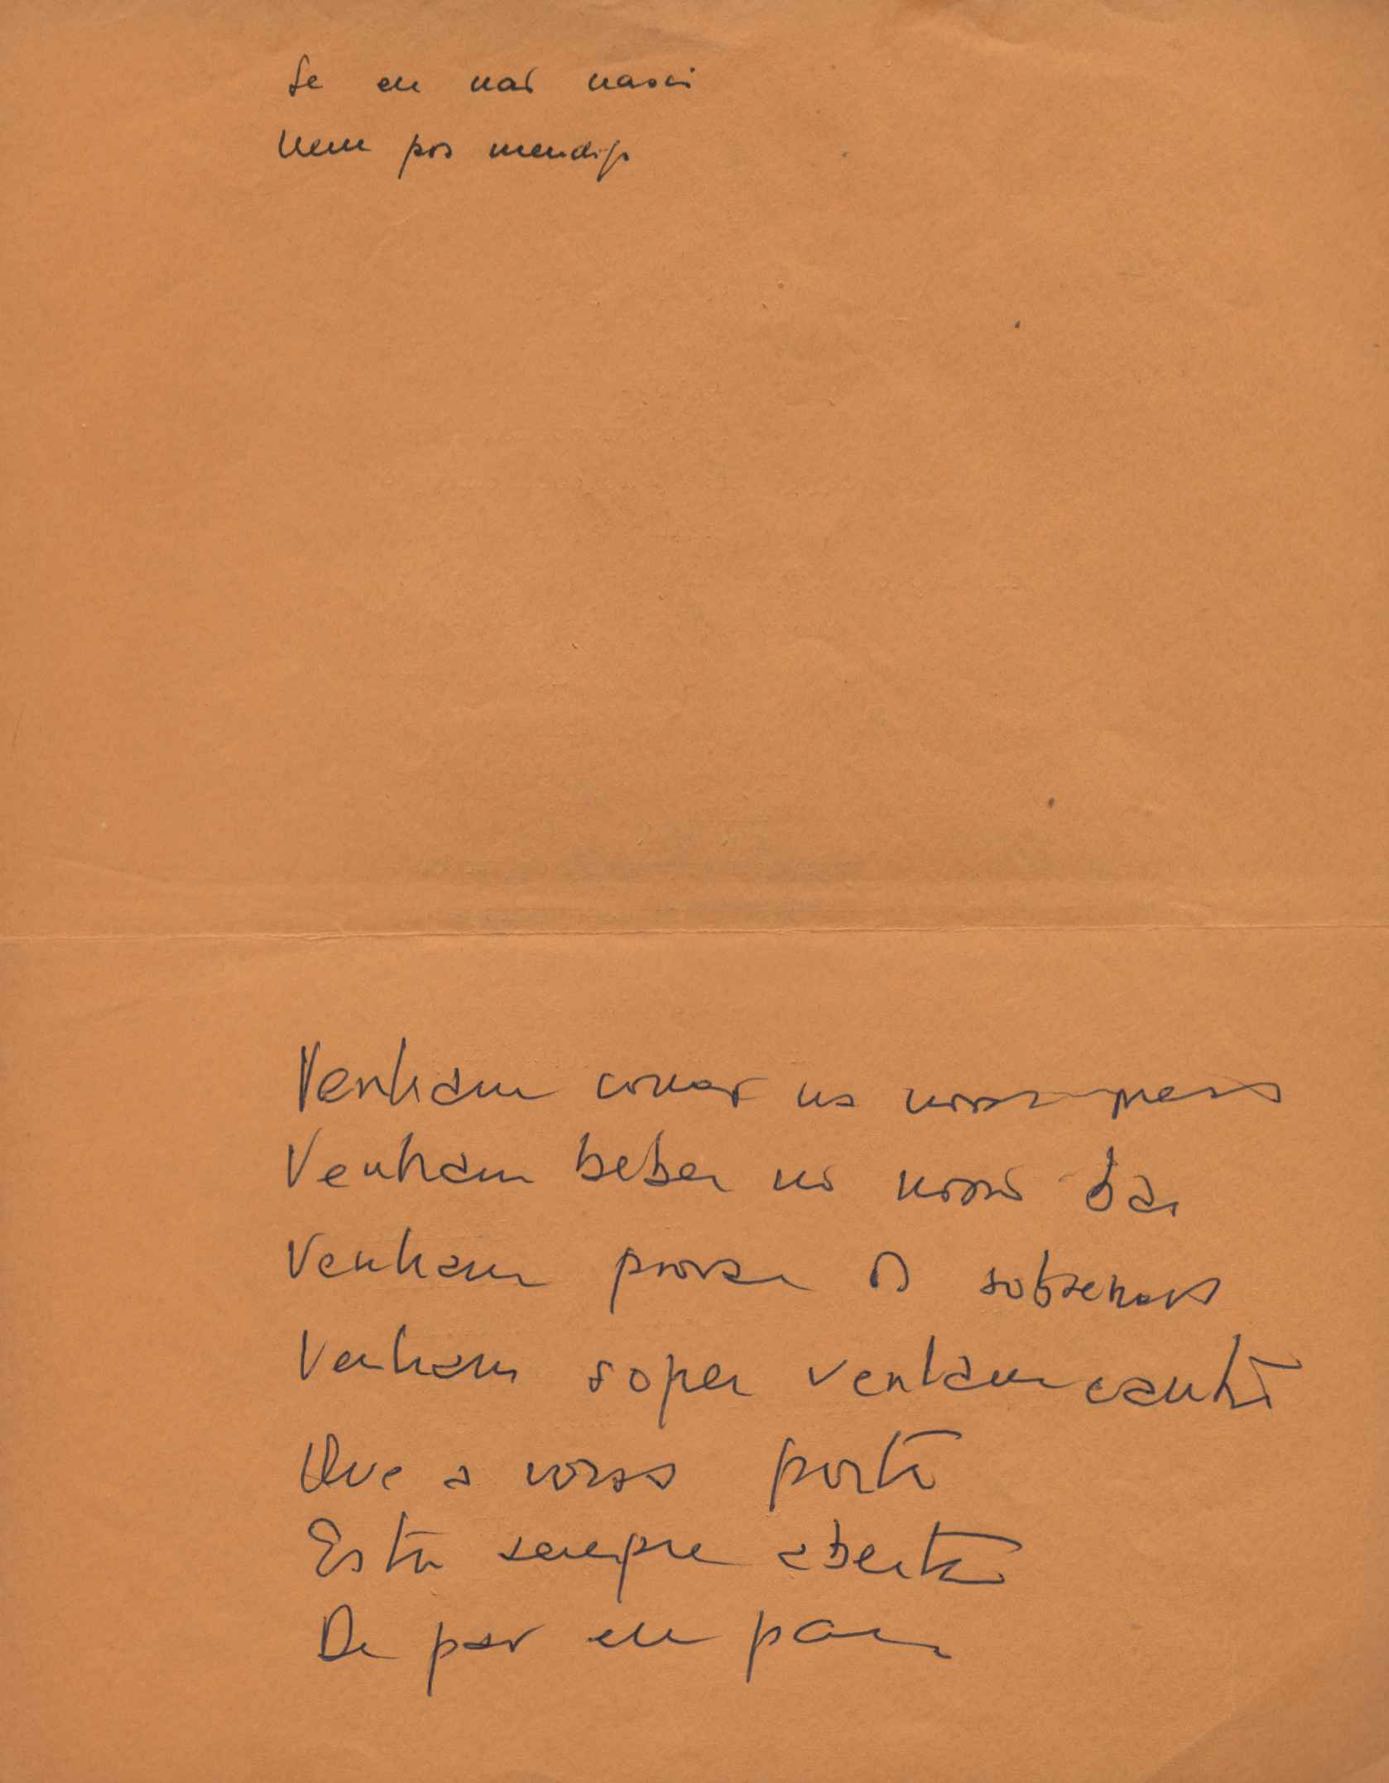 Se eu não nasci
Nem pos mendigo
Venham comer na nossa mesa
Venham beber no nosso bar
Venham provar os
Venham sopen venham cantar
Que a nossa porta
Está sempre aberta
De par em par